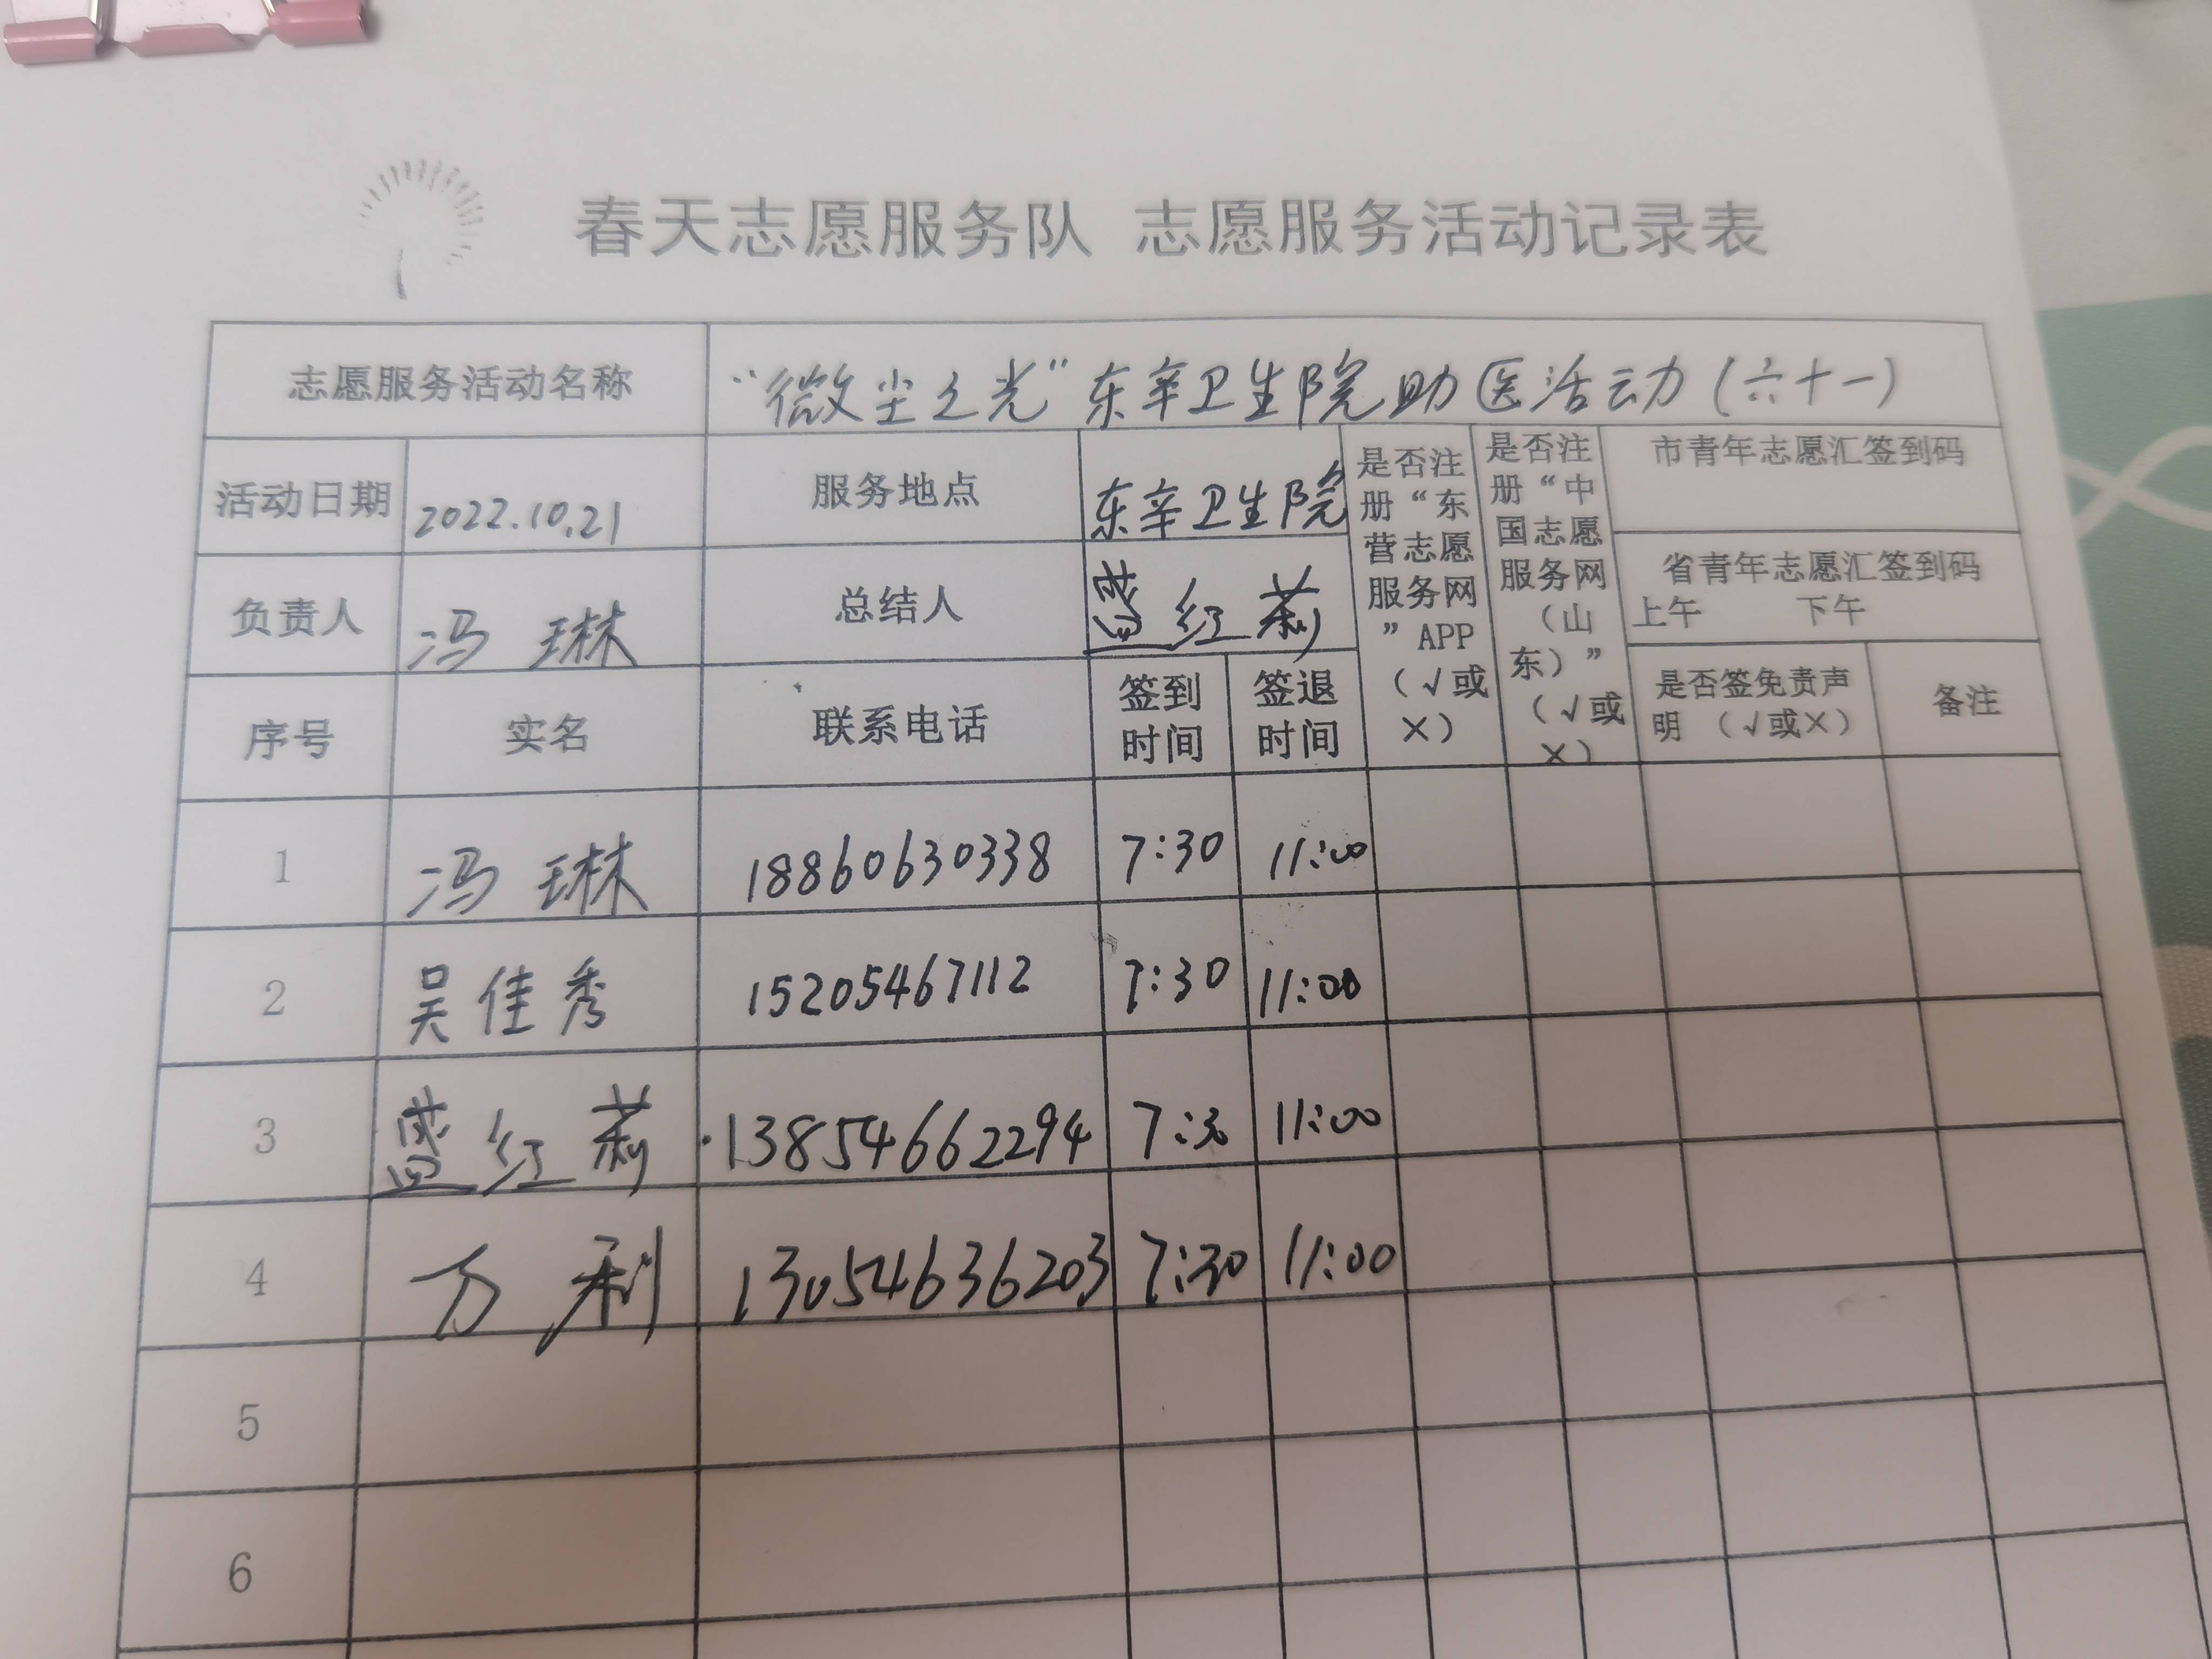 春天志愿服务队 志愿服务活动记录表
志愿服务活动名称 “微尘之光”东辛卫生院助医活动(六十一)
活动日期 2022.10.21 服务地点 东辛卫生院
是否注册“东营志愿服务网”APP（√或×）
是否注册“中国志愿服务网（山东）”（√或×）
市青年志愿汇签到码
省青年志愿汇签到码
上午 下午
负责人 冯琳 总结人 红莉
序号 实名 联系电话 签到时间 签退时间 是否签免责声明 （√或×） 备注
1 冯琳 18860630338 7:30 11:00
2 吴佳秀 15205467112 7:30 11:00
3 红莉 13854662294 7:30 11:00
4 万利 13054636203 7:30 11:00
5
6